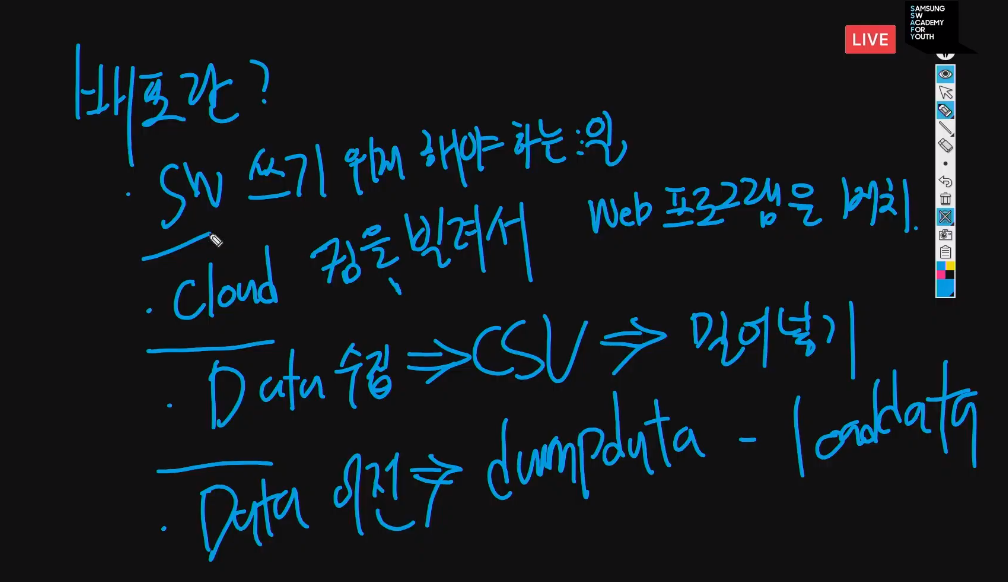 SAMSUNG
SW
ACADEMY
FOR
YOUTH
LIVE
배포란?
· SW 쓰기 위해 해야 하는 일
· Cloud 컴을 빌려서 Web 프로그램을 배치.
· Data 수집 ⇒ CSV ⇒ 밀어넣기
· Data 이전 ⇒ dumpdata - loaddata